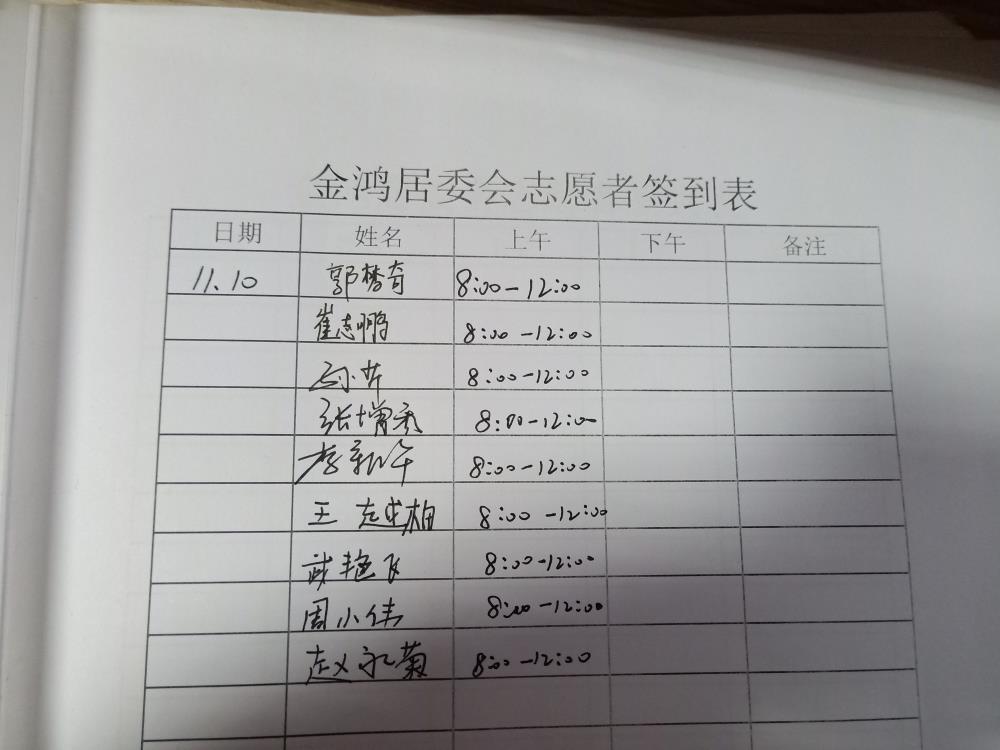 金鸿居委会志愿者签到表
日期 姓名 上午 下午 备注
11.10 郭梦奇 8:00-12:00
崔志鹏 8:00-12:00
8:00-12:00
张增秀 8:00-12:00
李新午 8:00-12:00
王 8:00-12:00
武艳飞 8:00-12:00
周小伟 8:00-12:00
赵永菊 8:00-12:00